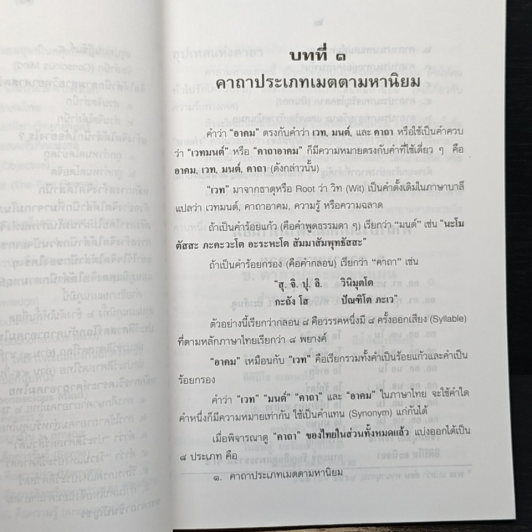 บทที่ ๑
คาถาประเภทเมตตามหานิยม
คำว่า "อาคม" ตรงกับคำว่า เวท, มนต์, และ คาถา หรือใช้เป็นคำควบ
ว่า "เวทมนต์" หรือ "คาถาอาคม" ก็มีความหมายตรงกับคำที่ใช้เดี่ยว ๆ คือ
อาคม, เวท, มนต์, คาถา (ดังกล่าวนั้น)
"เวท" มาจากธาตุหรือ Root ว่า วิท (Wit) เป็นคำดั้งเดิมในภาษาบาลี
แปลว่า เวทมนต์, คาถาอาคม, ความรู้ หรือความฉลาด
ถ้าเป็นคำร้อยแก้ว (คือคำพูดธรรมดา ๆ) เรียกว่า "มนต์" เช่น "นะโม
ตัสสะ ภะคะวะโต อะระหะโต สัมมาสัมพุทธัสสะ"
ถ้าเป็นคำร้อยกรอง (คือคำกลอน) เรียกว่า "คาถา" เช่น
"สุ. จิ. ปุ. ลิ. วินิมุตโต
กะถัง โส ปัณฑิโต ภะเว"
ตัวอย่างนี้เรียกว่ากลอน ๘ คือวรรคหนึ่งมี ๘ ครั้งออกเสียง (Syllable)
ที่ตามหลักภาษาไทยเรียกว่า ๘ พยางค์
"อาคม" เหมือนกับ "เวท" คือเรียกรวมทั้งคำเป็นร้อยแก้วและคำเป็น
ร้อยกรอง
คำว่า "เวท" "มนต์" "คาถา" และ "อาคม" ในภาษาไทย จะใช้คำใด
คำหนึ่งก็มีความหมายเท่ากัน ใช้เป็นคำแทน (Synonym) แก่กันได้
เมื่อพิจารณาดู "คาถา" ของไทยในส่วนทั้งหมดแล้ว แบ่งออกได้เป็น
๘ ประเภท คือ
๑. คาถาประเภทเมตตามหานิยม